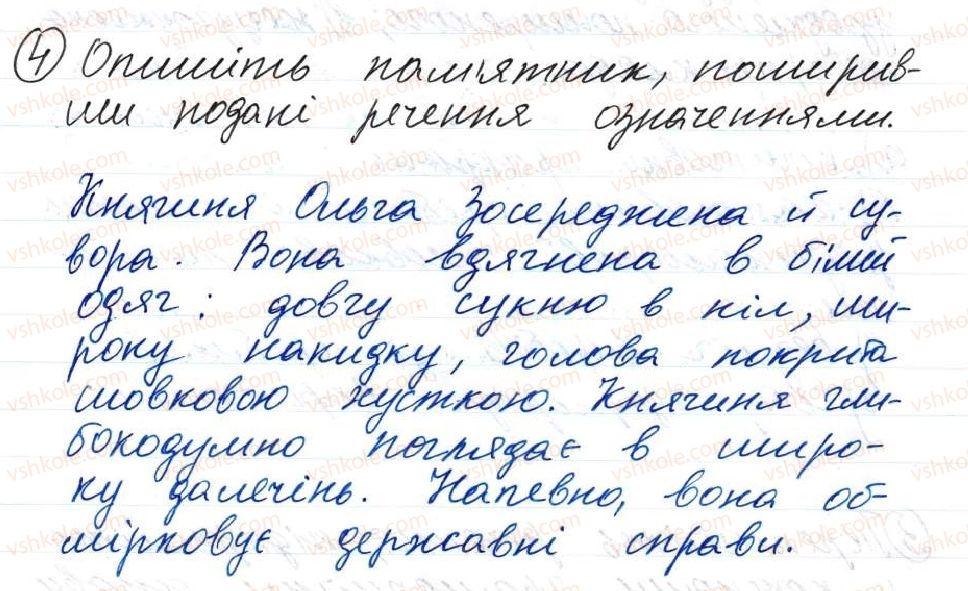 4 Опишіть пам'ятник, поширив-
ши подані речення означеннями.
Княгиня Ольга зосереджена й су-
вора. Вона вдягнена в білий
одяг: довгу сукню в піл, ши-
року накидку, голова покрита
шовковою хусткою. Княгиня гли-
бокодумно поглядає в широ-
ку далечінь. Напевно, вона об-
мірковує державні справи.